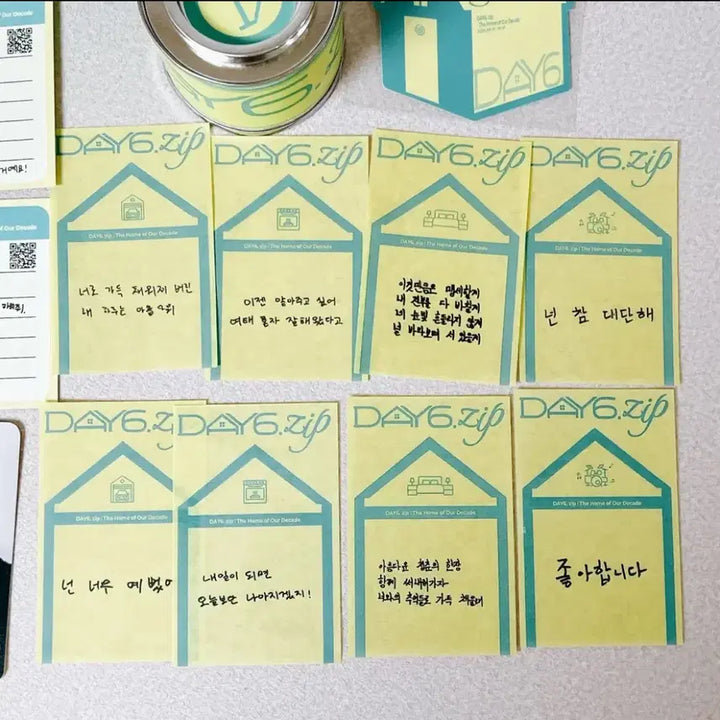 DAY6
DAY6
DAY6.zip
DAY6.zip
DAY6.zip
DAY6.zip
DAY6.zip : The Home of Our Decade
DAY6.zip : The Home of Our Decade
DAY6.zip : The Home of Our Decade
DAY6.zip : The Home of Our Decade
너로 가득 채워져 버린
내 하루는 아름다워
이젠 알아주고 싶어
여태 혼자 잘해왔다고
이것만큼은 맹세할게
내 전부를 다 바칠게
네 눈빛 흔들리지 않게
널 바라보며 서 있을게
넌 참 대단해
DAY6.z
DAY6.zip
DAY6.zip
DAY6.zip
DAY6.zip : The Home of Our Decade
DAY6.zip : The Home of Our Decade
DAY6.zip : The Home of Our Decade
DAY6.zip : The Home of Our Decade
넌 너무 예뻤어
내일이 되면
오늘보단 나아지겠지!
아름다운 청춘의 한 장
함께 써내려가자
너와의 추억들로 가득 채울래
좋아합니다